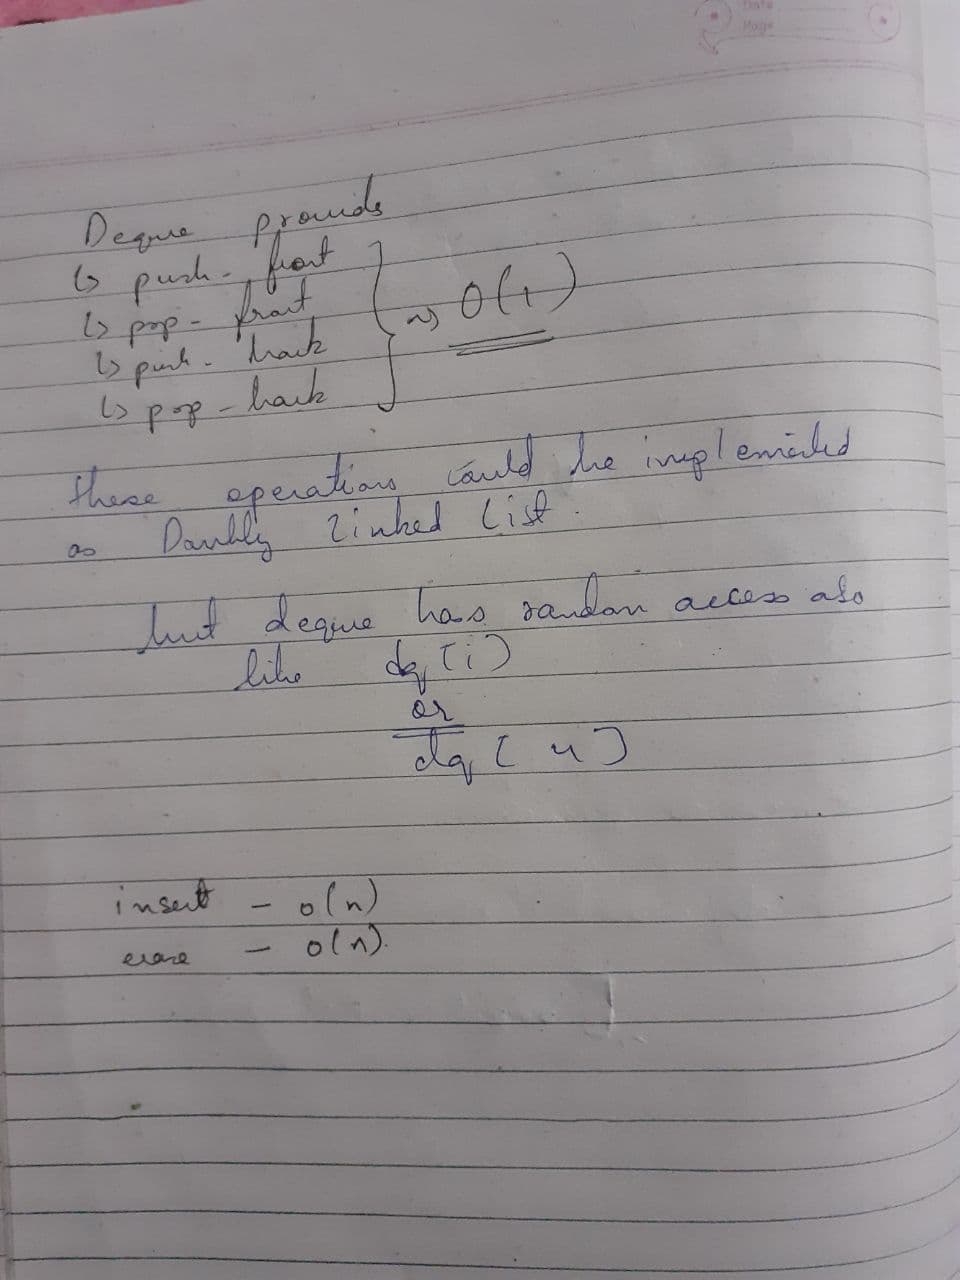 Date
Page
Deque provids
↳ push - front
↳ pop - front
↳ push - back
↳ pop - back
} ⇝ O(1)
these operations could be implemented
as Doubly Linked List.
but deque has random access also
like dq[i]
or
dq[4]
insert - o(n)
erase - o(n).